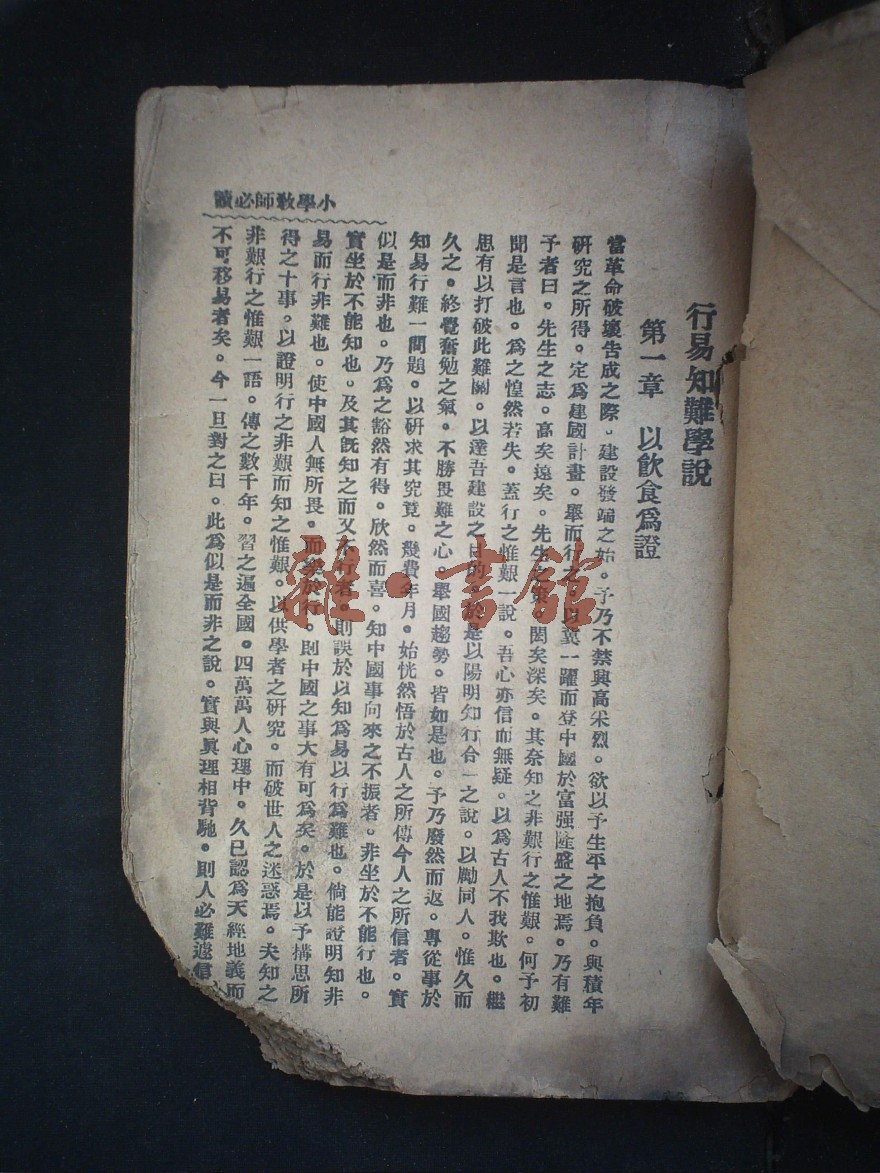 小學教師必讀
行易知難學說
第一章　以飲食爲證
當革命破壞告成之際。建設發端之始。予乃不禁興高采烈。欲以予生平之抱負。與積年
研究之所得。定爲建國計畫。舉而行之。以冀一躍而登中國於富强隆盛之地焉。乃有難
予者曰。先生之志。高矣遠矣。先生之策。閎矣深矣。其奈知之非艱行之惟艱。何予初
聞是言也。爲之惶然若失。蓋行之惟艱一說。吾心亦信而無疑。以爲古人不我欺也。繼
思有以打破此難關。以達吾建設之目的。於是以陽明知行合一之說。以勵同人。惟久而
久之。終覺奮勉之氣。不勝畏難之心。舉國趨勢。皆如是也。予乃廢然而返。專從事於
知易行難一問題。以研求其究竟。幾費年月。始恍然悟於古人之所傳今人之所信者。實
似是而非也。乃爲之豁然有得。欣然而喜。知中國事向來之不振者。非坐於不能行也。
實坐於不能知也。及其旣知之而又不行者。則誤於以知爲易以行爲難也。倘能證明知非
易而行非難也。使中國人無所畏。而樂於行。則中國之事大有可爲矣。於是以予構思所
得之十事。以證明行之非艱而知之惟艱。以供學者之研究。而破世人之迷惑焉。夫知之
非艱行之惟艱一語。傳之數千年。習之遍全國。四萬萬人心理中。久已認爲天經地義而
不可移易者矣。今一旦對之曰。此爲似是而非之說。實與眞理相背馳。則人必難遽信
雜·書館